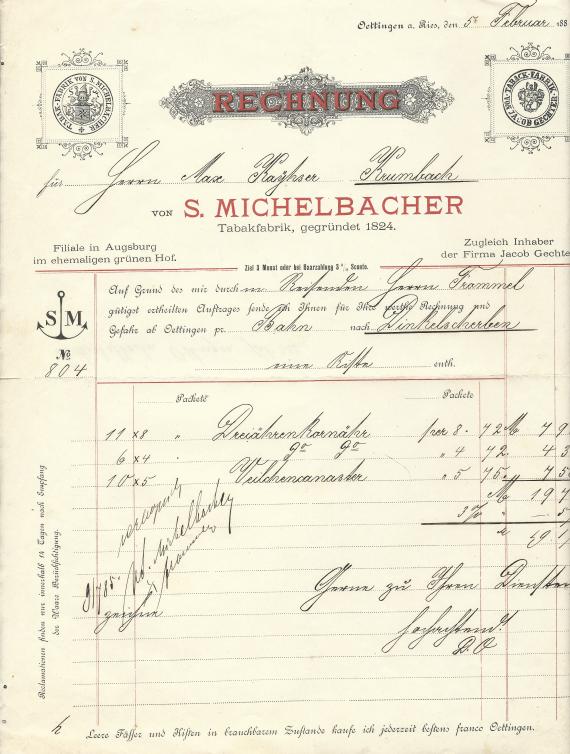 Oettingen a. Ries, den 5. Februar 188
TABAK-FABRIK VON S. MICHELBACHER
RECHNUNG
TABACK-FABRIK VON JACOB
für Herrn Max Krumbach
VON S. MICHELBACHER
Tabakfabrik, gegründet 1824.
Filiale in Augsburg
im ehemaligen grünen Hof.
Zugleich Inhaber
der Firma Jacob Gechte
Ziel 3 Monat oder bei Baarzahlung 3 % Sconto.
S M
№
804
Auf Grund des mir durch m. Reisenden Herrn Frommel
gütigst ertheilten Auftrages sende ich Ihnen für Ihre werthe Rechnung und
Gefahr ab Oettingen pr. Bahn nach Dinkelscherben
eine Kiste enth.
Packets Packete
11 x 8 " Dreiährenkornähr per 8. 72 M 79
6 x 4 " do do " 4 72. 43
10 x 5 Veilchencanaster " 5 75 75
M 197
3% " 5
59.1
Gerne zu Ihren Diensten
zeichne
hochachtend
D. O
91/785. pt. Michelbacher
Frommel
Reclamationen finden nur innerhalb 14 Tagen nach Empfang
der Waare Berücksichtigung.
Leere Fässer und Kisten in brauchbarem Zustande kaufe ich jederzeit bestens franco Oettingen.